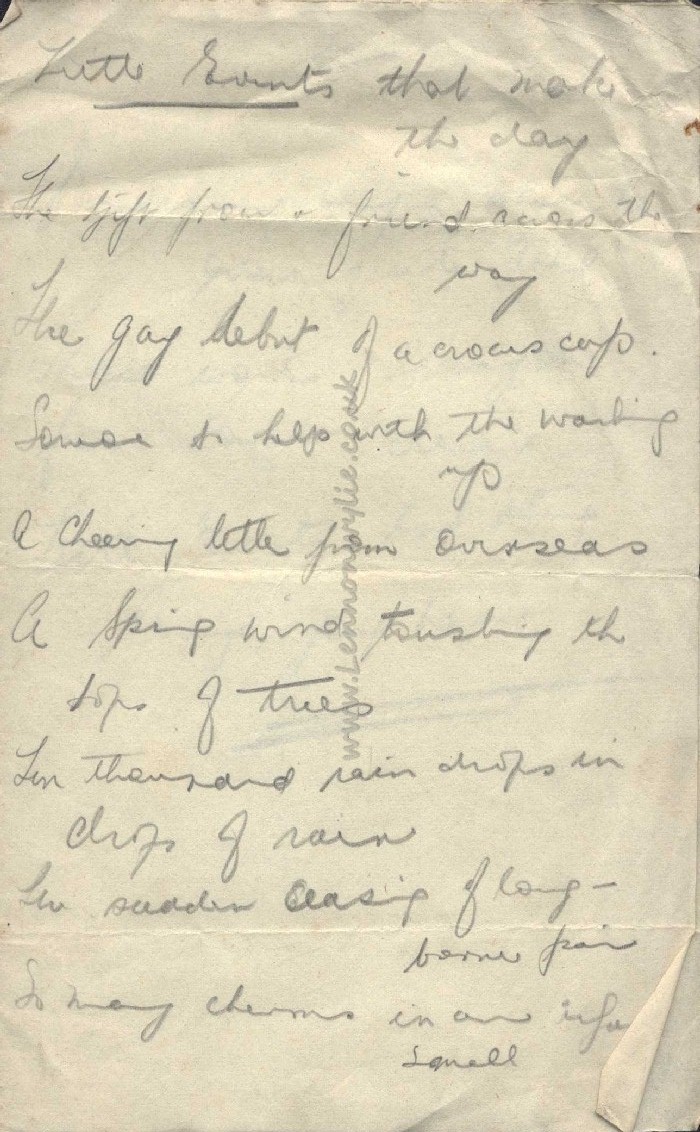 Little Events that make
the day
The gift from a friend across the
way
The gay debut of a crocus cup.
Someone to help with the washing
up
A cheering letter from overseas
A Spring wind touching the
tops of trees
Ten thousand rain drops in
drops of rain
The sudden ceasing of long-
borne pain
So many charms in our
Small
www.Lennonwylie.co.uk